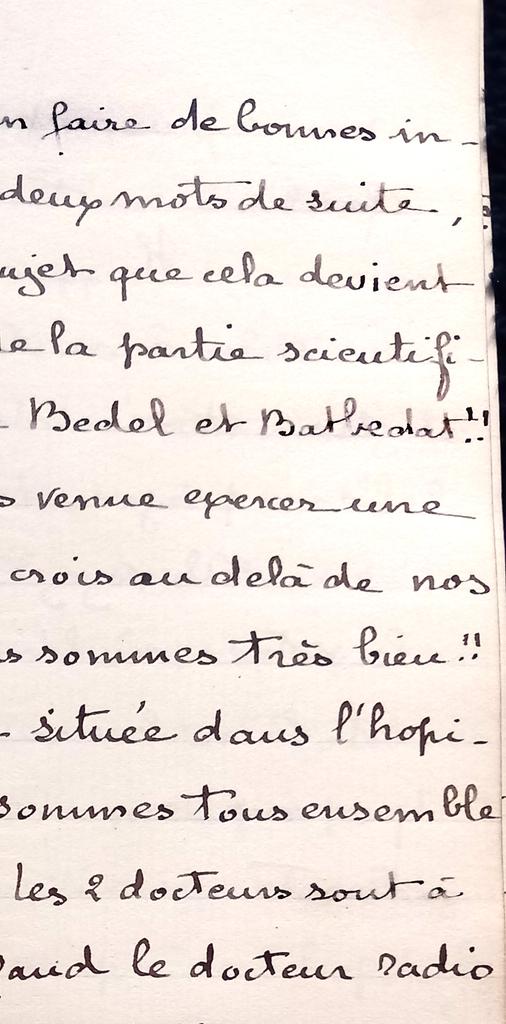 n faire de bonnes in-
deux mots de suite,
ujet que cela devient
e la partie scientifi-
- Bedel et Bathedat!!
s venue exercer une
crois au delà de nos
s sommes très bien!!
- située dans l'hopi-
sommes tous ensemble
les 2 docteurs sont à
and le docteur radio